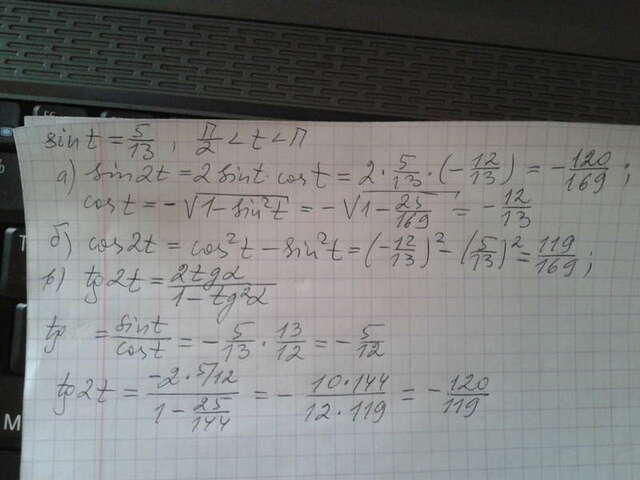 sin t = 5/13 , π/2 < t < π
а) sin2t = 2 sint · cos t = 2 · 5/13 · (-12/13) = - 120/169 ;
cos t = -√(1-sin²t) = -√(1 - 25/169) = - 12/13
б) cos 2t = cos²t - sin²t = (-12/13)² - (5/13)² = 119/169 ;
в) tg 2t = 2tgα/(1-tg²α)
tg = sint/cost = - 5/13 · 13/12 = - 5/12
tg2t = (-2·5/12)/(1 - 25/144) = - (10·144)/(12·119) = - 120/119